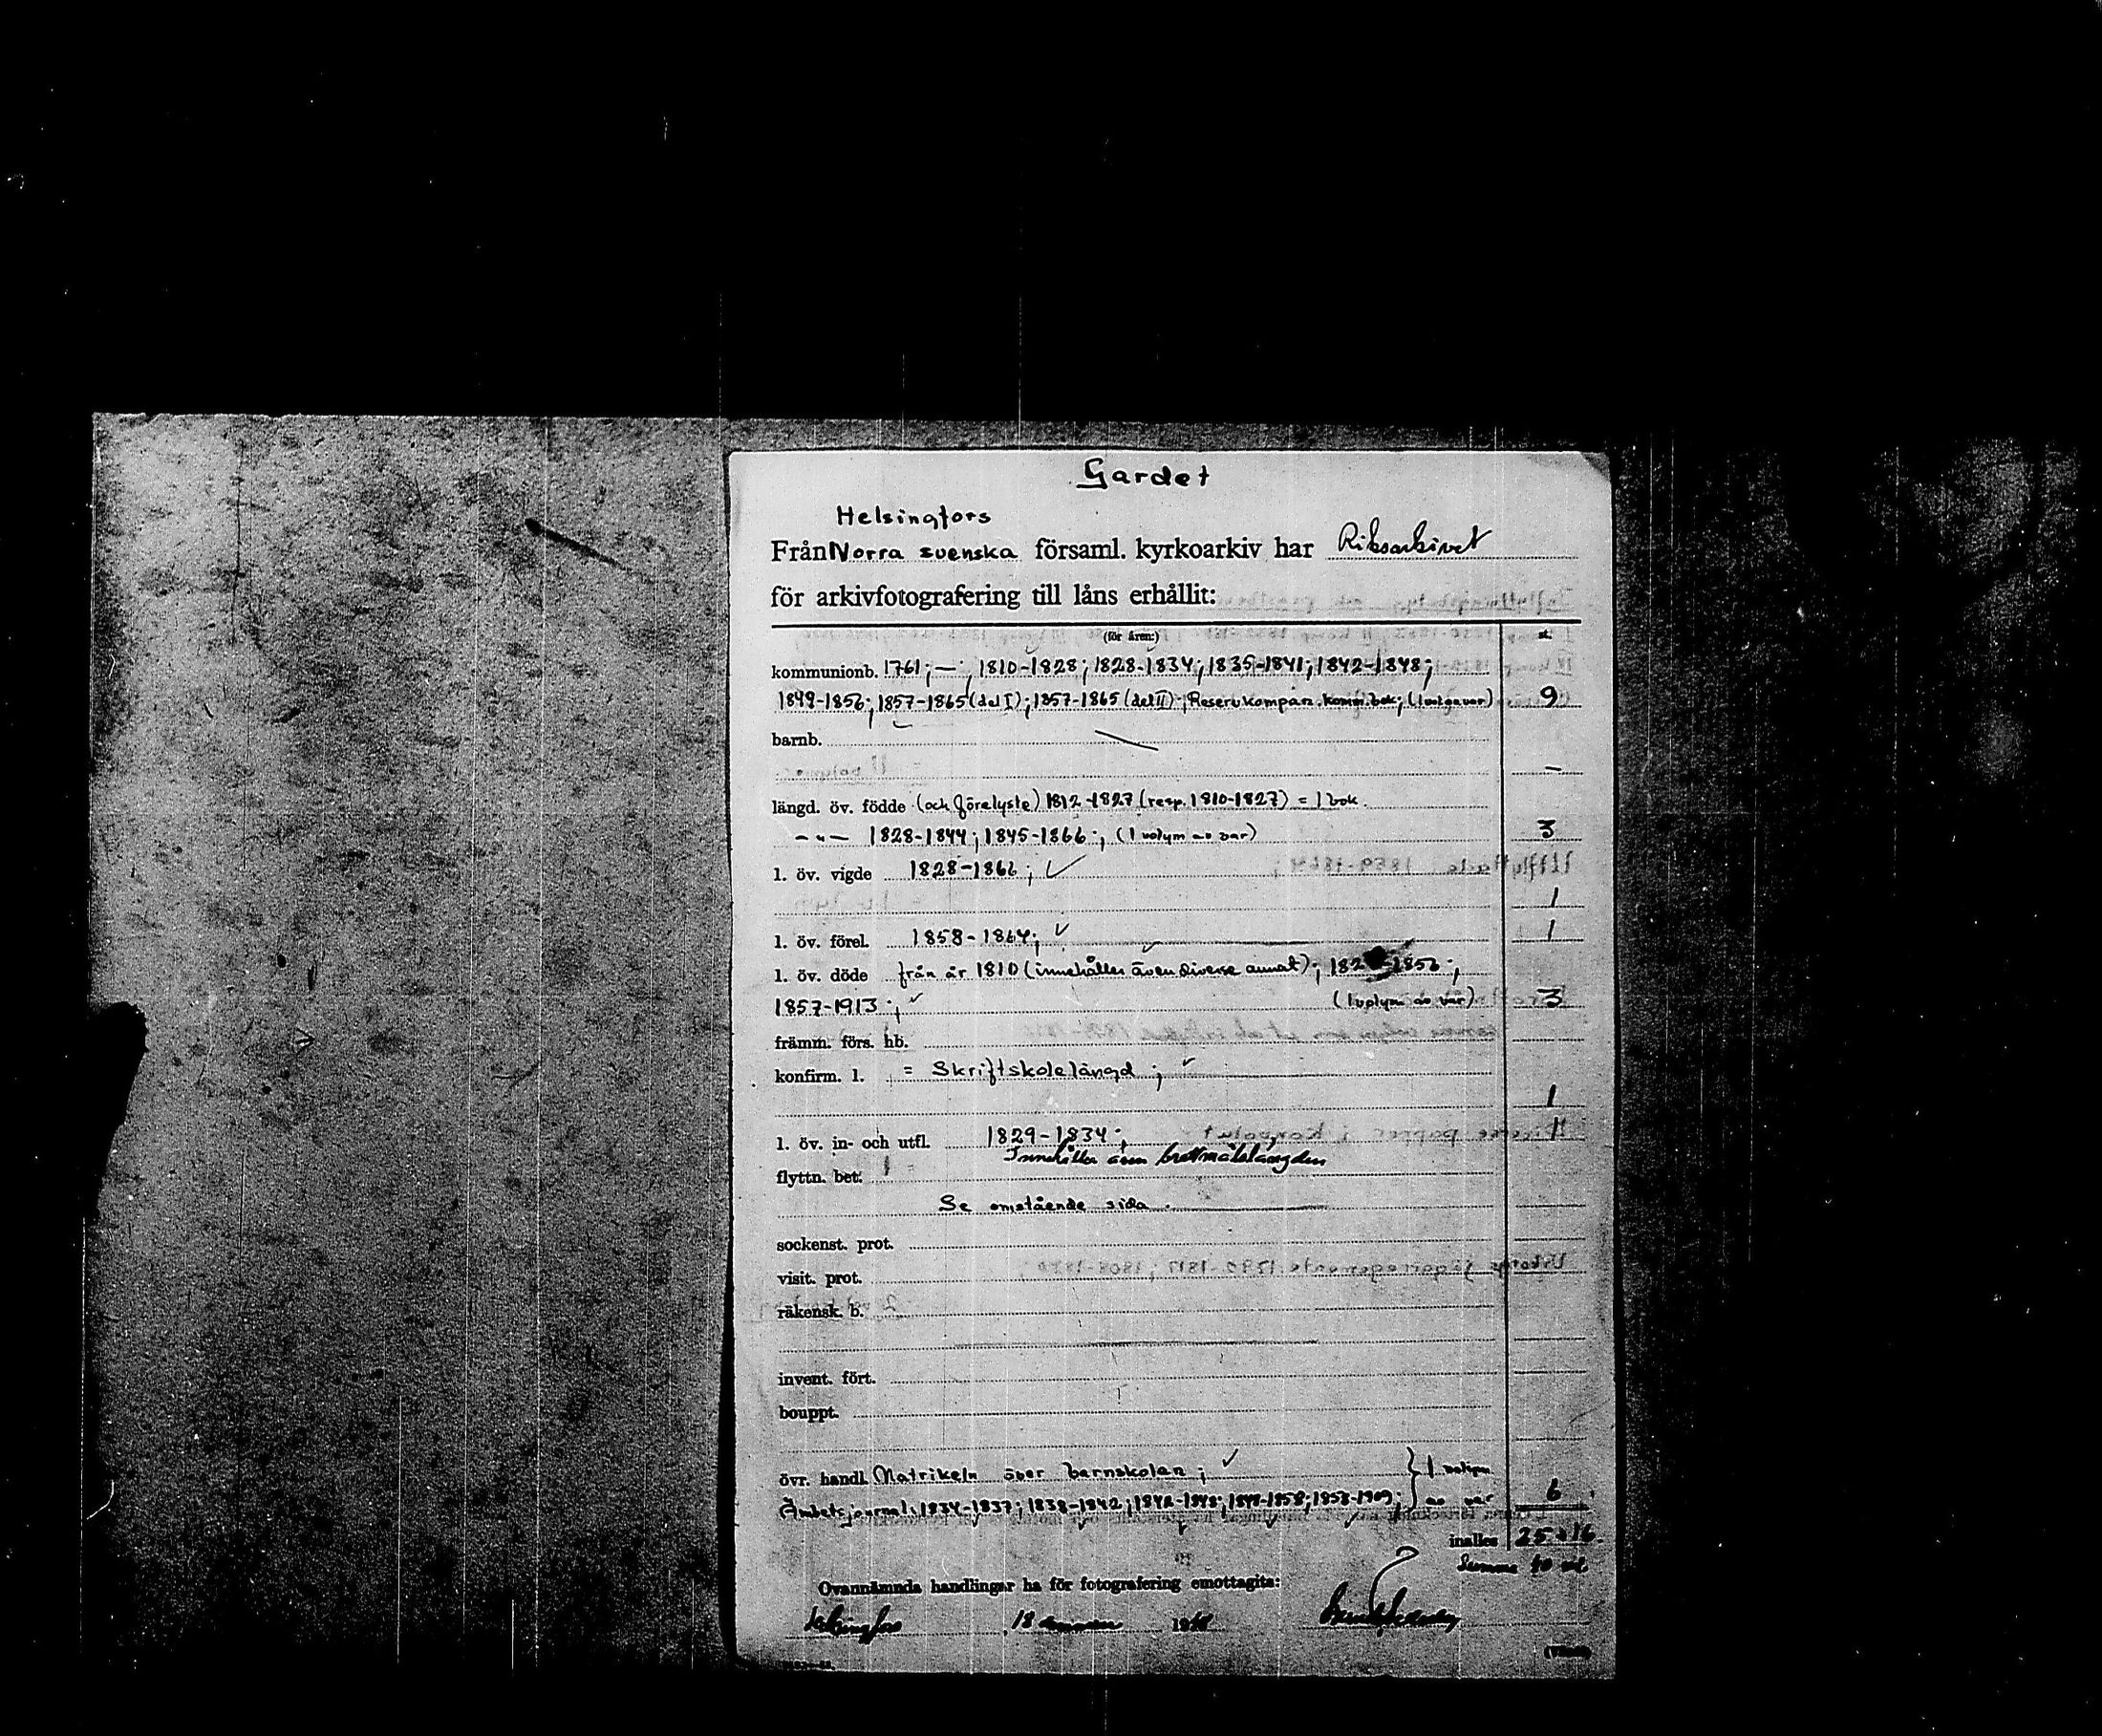 Gardet
Helsingfors
Från Norra svenska församl. kyrkoarkiv har Riksarkivet
för arkivfotografering till låns erhållit:
(för åren:) st.
kommunionb. 1761; —; 1810-1828; 1828-1834; 1835-1841; 1842-1848;
1849-1856; 1857-1865 (del I); 1857-1865 (del II); Reservkompan. komm.bok; (1 vol. av var) 9
barnb.
—
längd. öv. födde (och förelyste) 1812-1827 (resp. 1810-1827) = 1 bok.
-"- 1828-1844; 1845-1866; (1 volym av var) 3
l. öv. vigde 1828-1866; ✓
1
l. öv. förel. 1858-1864; ✓ 1
l. öv. döde från år 1810 (innehåller även diverse annat);
1857-1913; ✓ (1 volym av var) 3
främm. förs. hb.
konfirm. l. = Skriftskolelängd; ✓
1
l. öv. in- och utfl. 1829-1834; 1
Innehåller även
flyttn. bet.
Se omstående sida.
sockenst. prot.
visit. prot.
räkensk. b.
invent. fört.
bouppt.
övr. handl. Matrikeln över barnskolan; ✓ } 1 volym
Ämbetsjournal: 1834-1837; 1838-1842; 1858-1909; av var 6
inalles 25 + 16.
Summa
Ovannämnda handlingar ha för fotografering emottagits:
Helsingfors 18